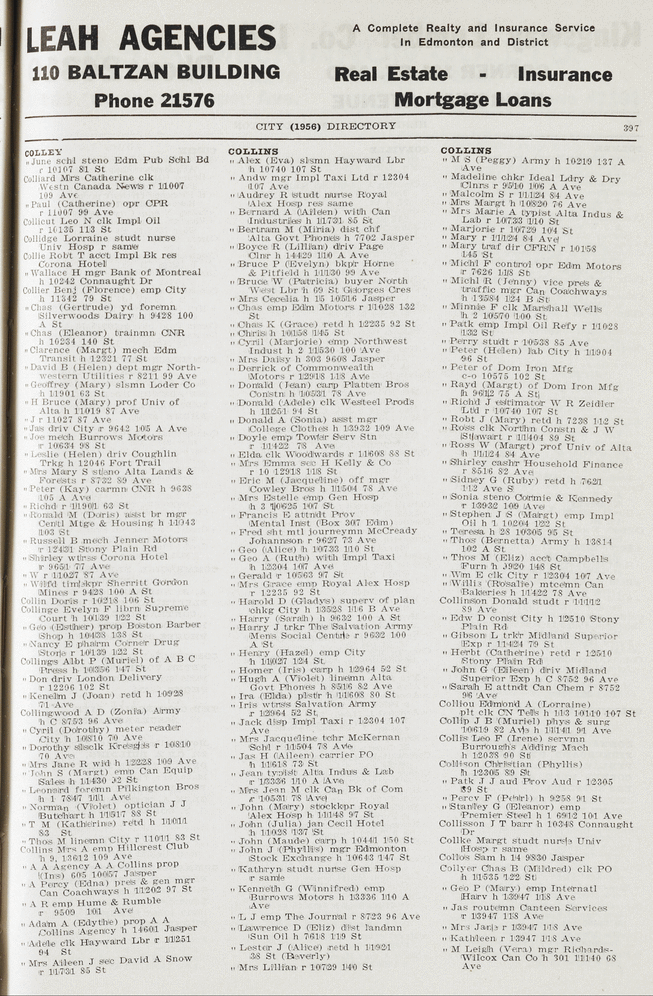 LEAH AGENCIES
110 BALTZAN BUILDING
Phone 21576
A Complete Realty and Insurance Service
In Edmonton and District
Real Estate - Insurance
Mortgage Loans
CITY (1956) DIRECTORY
397
COLLEY
" June schl steno Edm Pub Schl Bd
r 10107 81 St
Colliard Mrs Catherine clk
Westn Canada News r 11007
109 Ave
" Paul (Catherine) opr CPR
r 11007 99 Ave
Collicut Leo N clk Impl Oil
r 10135 113 St
Collidge Lorraine studt nurse
Univ Hosp r same
Collie Robt T acct Impl Bk res
Corona Hotel
" Wallace H mgr Bank of Montreal
h 10242 Connaught Dr
Collier Benj (Florence) emp City
h 11342 79 St
" Chas (Gertrude) yd foremn
Silverwoods Dairy h 9428 100
A St
" Chas (Eleanor) trainmn CNR
h 10234 140 St
" Clarence (Margt) mech Edm
Transit h 12321 77 St
" David B (Helen) dept mgr North-
western Utilities r 8211 99 Ave
" Geoffrey (Mary) slsmn Loder Co
h 11901 63 St
" H Bruce (Mary) prof Univ of
Alta h 11019 87 Ave
" J r 11027 87 Ave
" Jas driv City r 9642 105 A Ave
" Joe mech Burrows Motors
r 10634 98 St
" Leslie (Helen) driv Coughlin
Trkg h 12046 Fort Trail
" Mrs Mary S steno Alta Lands &
Forests r 8732 89 Ave
" Peter (Kay) carmn CNR h 9638
105 A Ave
" Richd r 11901 63 St
" Ronald M (Doris) asst br mgr
Centl Mtge & Housing h 11043
103 St
" Russell B mech Jenner Motors
r 12431 Stony Plain Rd
" Shirley wtrss Corona Hotel
r 9651 77 Ave
" W r 11027 87 Ave
" Wilfd timkspr Sherritt Gordon
Mines r 9428 100 A St
Collin Doris r 10218 106 St
Collinge Evelyn F librn Supreme
Court h 10139 122 St
" Geo (Esther) prop Boston Barber
Shop h 10438 138 St
" Nancy E pharm Corner Drug
Store r 10139 122 St
Collings Albt P (Muriel) of A B C
Press h 10356 147 St
" Don driv London Delivery
r 12296 102 St
" Kenelm J (Joan) retd h 10928
71 Ave
Collingwood A D (Zonia) Army
h C 8753 96 Ave
" Cyril (Dorothy) meter reader
City h 10810 70 Ave
" Dorothy slsclk Kresges r 10810
70 Ave
" Mrs Jane R wid h 12228 109 Ave
" John S (Margt) emp Can Equip
Sales h 11430 92 St
" Leonard foremn Pilkington Bros
h 1 7847 111 Ave
" Norman (Violet) optician J J
Butchart h 11517 88 St
" T M (Katherine) retd h 11011
83 St
" Thos M linemn City r 11011 83 St
Collins Mrs A emp Hillcrest Club
h 9, 13612 109 Ave
" A A Agency A A Collins prop
(Ins) 605 10057 Jasper
" A Percy (Edna) pres & gen mgr
Can Coachways h 11202 97 St
" A R emp Hume & Rumble
r 9509 101 Ave
" Adam A (Edythe) prop A A
Collins Agency h 14601 Jasper
" Adele clk Hayward Lbr r 11251
94 St
" Mrs Aileen J sec David A Snow
r 11731 85 St
COLLINS
" Alex (Eva) slsmn Hayward Lbr
h 10740 107 St
" Andw mgr Impl Taxi Ltd r 12304
107 Ave
" Audrey R studt nurse Royal
Alex Hosp res same
" Bernard A (Aileen) with Can
Industries h 11731 85 St
" Bertram M (Miria) dist chf
Alta Govt Phones h 7702 Jasper
" Boyce R (Lillian) driv Page
Clnr h 14429 110 A Ave
" Bruce P (Evelyn) bkpr Horne
& Pitfield h 11130 99 Ave
" Bruce W (Patricia) buyer North
West Lbr h 69 St Georges Cres
" Mrs Cecelia h 15 10516 Jasper
" Chas emp Edm Motors r 11028 132
St
" Chas K (Grace) retd h 12235 92 St
" Chris h 10158 145 St
" Cyril (Marjorie) emp Northwest
Indust h 2 11530 100 Ave
" Mrs Daisy h 303 9608 Jasper
" Derrick of Commonwealth
Motors r 12918 118 Ave
" Donald (Jean) carp Platten Bros
Constn h 10531 78 Ave
" Donald (Adele) clk Westeel Prods
h 11251 94 St
" Donald A (Sonia) asst mgr
College Clothes h 13932 109 Ave
" Doyle emp Tower Serv Stn
r 11422 78 Ave
" Elda clk Woodwards r 11608 88 St
" Mrs Emma sec H Kelly & Co
r 10 12918 118 St
" Eric M (Jacqueline) off mgr
Cowley Bros h 11504 78 Ave
" Mrs Estelle emp Gen Hosp
h 3 10625 107 St
" Francis E attndt Prov
Mental Inst (Box 307 Edm)
" Fred sht mtl journeymn McCready
Johannson r 9627 73 Ave
" Geo (Alice) h 10733 110 St
" Geo A (Ruth) with Impl Taxi
h 12304 107 Ave
" Gerald r 10563 97 St
" Mrs Grace emp Royal Alex Hosp
r 12235 92 St
" Harold D (Gladys) superv of plan
chkg City h 13528 116 B Ave
" Harry (Sarah) h 9632 100 A St
" Harry J trkr The Salvation Army
Mens Social Centre r 9632 100
A St
" Henry (Hazel) emp City
h 11027 124 St
" Homer (Iris) carp h 12964 52 St
" Hugh A (Violet) linemn Alta
Govt Phones h 8516 82 Ave
" Ira (Elda) plstr h 11608 80 St
" Iris wtrss Salvation Army
r 12964 52 St
" Jack disp Impl Taxi r 12304 107
Ave
" Mrs Jacqueline tchr McKernan
Schl r 11504 78 Ave
" Jas H (Aileen) carrier PO
h 11618 73 St
" Jean typist Alta Indus & Lab
r 13336 110 A Ave
" Mrs Jean M clk Can Bk of Com
r 10531 78 Ave
" John (Mary) stockkpr Royal
Alex Hosp h 11148 97 St
" John (Julia) jan Cecil Hotel
h 11028 137 St
" John (Maude) carp h 10441 150 St
" John J (Phyllis) mgr Edmonton
Stock Exchange h 10643 147 St
" Kathryn studt nurse Gen Hosp
r same
" Kenneth G (Winnifred) emp
Burrows Motors h 13336 110 A
Ave
" L J emp The Journal r 8723 96 Ave
" Lawrence D (Eliz) dist landmn
Sun Oil h 7618 119 St
" Lester J (Alice) retd h 11921
38 St (Beverly)
" Mrs Lillian r 10729 140 St
COLLINS
" M S (Peggy) Army h 10219 137 A
Ave
" Madeline chkr Ideal Ldry & Dry
Clnrs r 9510 106 A Ave
" Malcolm S r 11124 84 Ave
" Mrs Margt h 10820 76 Ave
" Mrs Marie A typist Alta Indus &
Lab r 10733 110 St
" Marjorie r 10729 104 St
" Mary r 11124 84 Ave
" Mary traf dir CFRN r 10158
145 St
" Michl F control opr Edm Motors
r 7626 118 St
" Michl R (Jenny) vice pres &
traffic mgr Can Coachways
h 13584 124 B St
" Minnie F clk Marshall Wells
h 2 10570 100 St
" Patk emp Impl Oil Refy r 11028
132 St
" Perry studt r 10538 85 Ave
" Peter (Helen) lab City h 11904
96 St
" Peter of Dom Iron Mfg
c-o 10075 102 St
" Rayd (Margt) of Dom Iron Mfg
h 9612 75 A St
" Richd J estimator W R Zeidler
Ltd r 10740 107 St
" Robt J (Mary) retd h 7238 112 St
" Ross clk Northn Constn & J W
Stewart r 11404 89 St
" Ross W (Margt) prof Univ of Alta
h 11124 84 Ave
" Shirley cashr Household Finance
r 8516 82 Ave
" Sidney G (Ruby) retd h 7621
112 Ave S
" Sonia steno Cormie & Kennedy
r 13932 109 St
" Stephen J S (Margt) emp Impl
Oil h 1 10204 122 St
" Teresa h 28 10305 95 St
" Thos (Bernetta) Army h 13814
102 A St
" Thos M (Eliz) acct Campbells
Furn h J920 148 St
" Wm E clk City r 12304 107 Ave
" Willis (Rosalie) mtcemn Can
Bakeries h 11422 78 Ave
Collinson Donald studt r 11112
89 Ave
" Edw D const City h 12510 Stony
Plain Rd
" Gibson L trkr Midland Superior
Exp r 11424 79 St
" Herbt (Catherine) retd r 12510
Stony Plain Rd
" John G (Eileen) driv Midland
Superior Exp h C 8752 96 Ave
" Sarah E attndt Can Chem r 8752
96 Ave
Colliou Edmond A (Lorraine)
plt clk CN Tels h 113 10110 107 St
Collip J B (Muriel) phys & surg
10619 82 Av h 11141 91 Ave
Collis Leo F (Irene) servmn
Burroughs Adding Mach
h 12038 90 St
Collison Christian (Phyllis)
h 12305 89 St
" Patk J J aud Prov Aud r 12305
89 St
" Percy F (Pearl) h 9258 91 St
" Stanley G (Eleanor) emp
Premier Steel h 1 6912 101 Ave
Collisson J T barr h 10348 Connaught
Dr
Collke Margt studt nurse Univ
Hosp r same
Collos Sam h 14 9830 Jasper
Collyer Chas B (Mildred) clk PO
h 11535 122 St
" Geo P (Mary) emp Internatl
Harv h 13947 118 Ave
" Jas routemn Canteen Services
r 13947 118 Ave
" Mrs Jatie r 13947 118 Ave
" Kathleen r 13947 118 Ave
" M Leigh (Vera) mgr Richards-
Wilcox Can Co h 301 11140 68
Ave